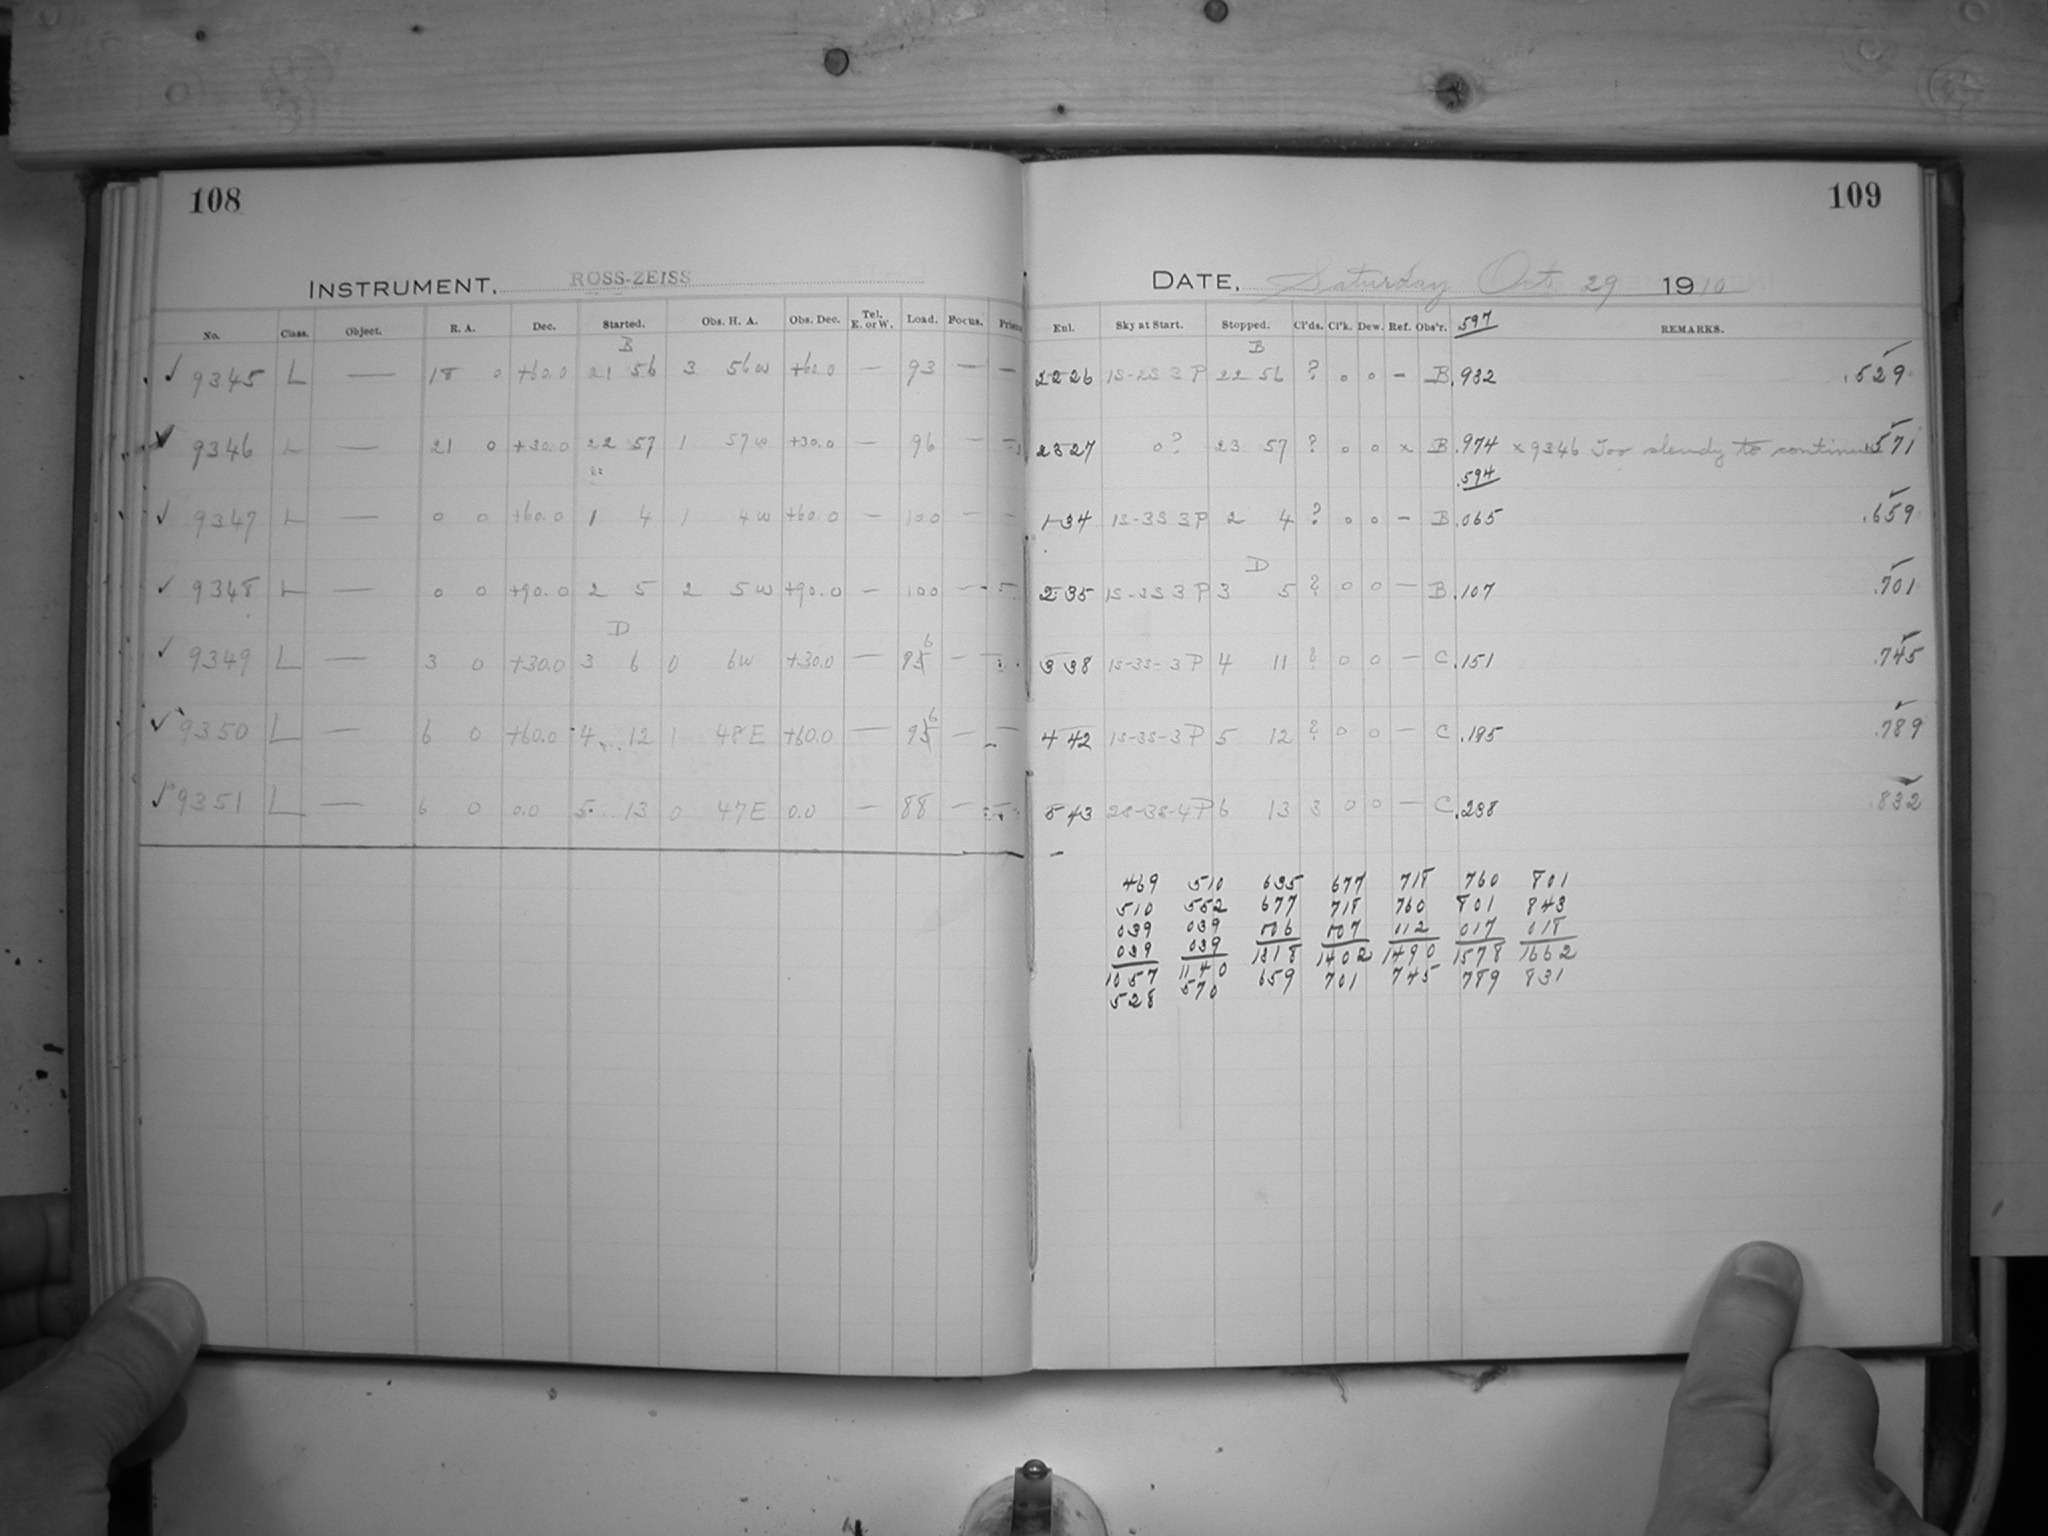 108
INSTRUMENT, ROSS-ZEISS
No. Class. Object. R. A. Dec. Started. Obs. H. A. Obs. Dec. Tel. E. or W. Load. Focus. Prism
B
✓ 9345 L — 18 0 +60.0 21 56 3 56 W +60.0 — 93 — —
✓ 9346 L — 21 0 +30.0 22 57 1 57 W +30.0 — 96 — —
✓ 9347 L — 0 0 +60.0 1 4 1 4 W +60.0 — 100 — —
✓ 9348 L — 0 0 +90.0 2 5 2 5 W +90.0 — 100 — —
D
✓ 9349 L — 3 0 +30.0 3 6 0 6 W +30.0 — 95 6 — —
✓ 9350 L — 6 0 +60.0 4 12 1 48 E +60.0 — 95 6 — —
✓ 9351 L — 6 0 0.0 5 13 0 47 E 0.0 — 88 — —
109
DATE, Saturday Oct. 29 1910
Enl. Sky at Start. Stopped. Cl'ds. Cl'k. Dew. Ref. Obs'r. .597 REMARKS.
B
22 26 1S-2S 3 P 22 56 ? 0 0 - B .932 .529
23 27 0? 23 57 ? 0 0 x B .974 x 9346 Too cloudy to continue .571
.594
1 34 1S-3S 3 P 2 4 ? 0 0 - B .065 .659
D
2 35 1S-3S 3 P 3 5 ? 0 0 - B .107 .701
3 38 1S-3S-3 P 4 11 ? 0 0 - C .151 .745
4 42 1S-3S-3 P 5 12 ? 0 0 - C .195 .789
5 43 2S-3S-4 P 6 13 3 0 0 - C .238 .832
469 510 635 677 718 760 801
510 552 677 718 760 801 843
039 039 006 007 012 017 018
039 039 1318 1402 1490 1578 1662
1057 1140 659 701 745 789 831
528 570